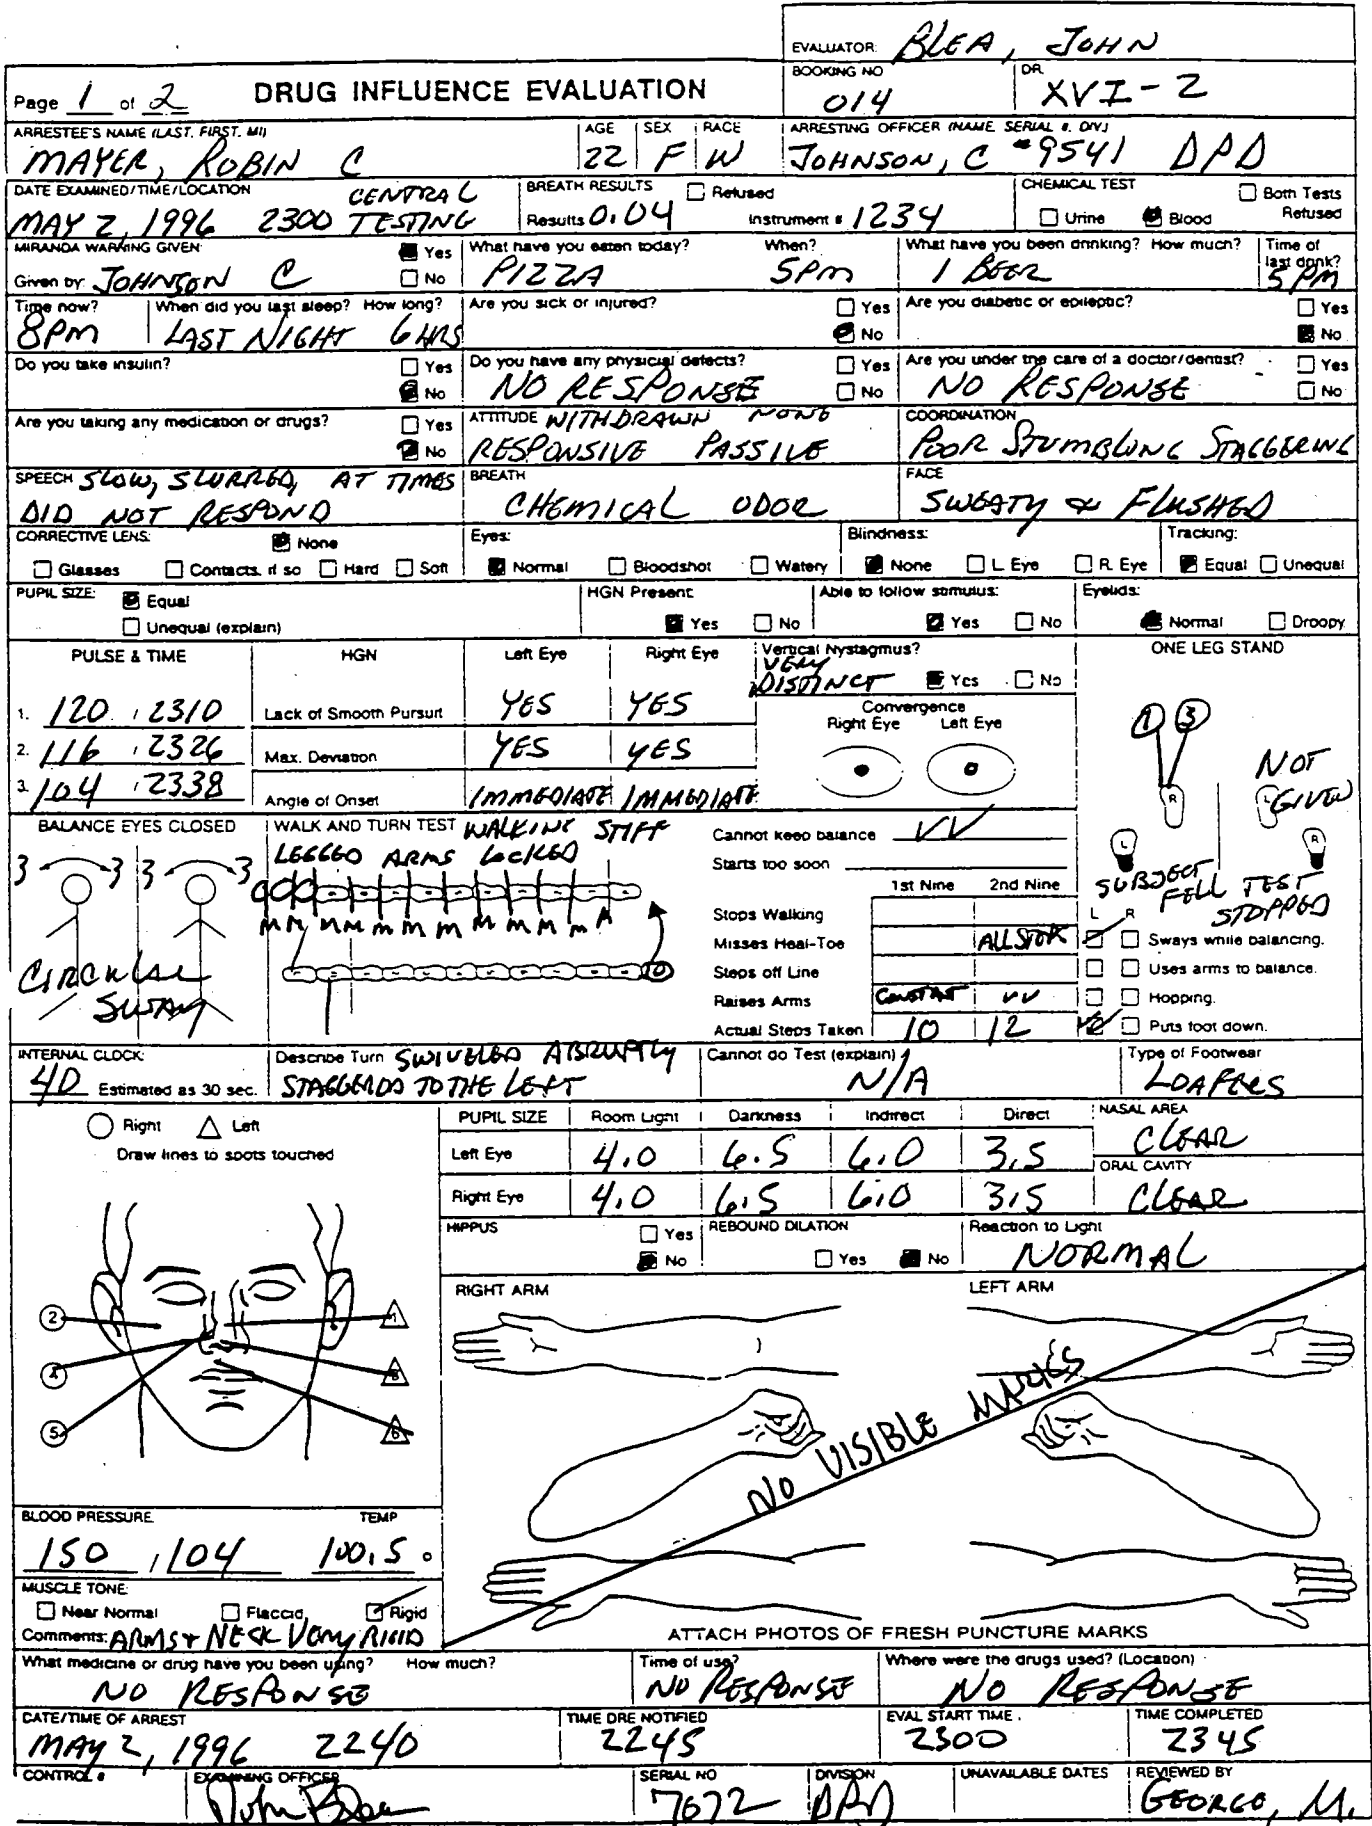 EVALUATOR: BLEA, JOHN
Page 1 of 2 DRUG INFLUENCE EVALUATION
BOOKING NO 014
DR. XVI-2
ARRESTEE'S NAME (LAST, FIRST, MI) MAYER, ROBIN C
AGE 22
SEX F
RACE W
ARRESTING OFFICER (NAME, SERIAL #, DIV.) JOHNSON, C #9541 DPD
DATE EXAMINED/TIME/LOCATION MAY 2, 1996 2300 CENTRAL TESTING
BREATH RESULTS Refused
Results 0.04 Instrument # 1234
CHEMICAL TEST Both Tests Refused
Urine Blood
MIRANDA WARNING GIVEN: Yes No
Given by: JOHNSON C
What have you eaten today? When?
PIZZA 5PM
What have you been drinking? How much?
1 BEER
Time of last drink?
5 PM
Time now?
8PM
When did you last sleep? How long?
LAST NIGHT 6 HRS
Are you sick or injured? Yes No
Are you diabetic or epileptic? Yes No
Do you take insulin? Yes No
Do you have any physicial defects? Yes No
NO RESPONSE
Are you under the care of a doctor/dentist? Yes No
NO RESPONSE
Are you taking any medication or drugs? Yes No
ATTITUDE WITHDRAWN NONE
RESPONSIVE PASSIVE
COORDINATION
POOR STUMBLING STAGGERING
SPEECH SLOW, SLURRED, AT TIMES
DID NOT RESPOND
BREATH
CHEMICAL ODOR
FACE
SWEATY & FLUSHED
CORRECTIVE LENS: None
Glasses Contacts, if so Hard Soft
Eyes:
Normal Bloodshot Watery
Blindness:
None L. Eye R. Eye
Tracking:
Equal Unequal
PUPIL SIZE: Equal
Unequal (explain)
HGN Present:
Yes No
Able to follow stimulus:
Yes No
Eyelids:
Normal Droopy
PULSE & TIME
1. 120 , 2310
2. 116 , 2326
3. 104 , 2338
HGN Left Eye Right Eye
Lack of Smooth Pursuit YES YES
Max. Deviation YES YES
Angle of Onset IMMEDIATE IMMEDIATE
Vertical Nystagmus?
VERY DISTINCT Yes No
Convergence
Right Eye Left Eye
ONE LEG STAND
1 3
R L
NOT GIVEN
L R
SUBJECT FELL TEST STOPPED
L R
Sways while balancing.
Uses arms to balance.
Hopping.
Puts foot down.
BALANCE EYES CLOSED
3 3 3 3
CIRCULAR SWAY
WALK AND TURN TEST WALKING STIFF
LEGGED ARMS LOCKED
M M M M M M M M M M M
Cannot keep balance
Starts too soon
1st Nine 2nd Nine
Stops Walking
Misses Heal-Toe
Steps off Line
Raises Arms CONSTANT
Actual Steps Taken 10 12
INTERNAL CLOCK:
40 Estimated as 30 sec.
Describe Turn SWIVELED ABRUPTLY
STAGGERED TO THE LEFT
Cannot do Test (explain)
N/A
Type of Footwear
LOAFERS
Right Left
Draw lines to spots touched
2 1
4 3
5 6
PUPIL SIZE Room Light Darkness Indirect Direct
Left Eye 4.0 6.5 6.0 3.5
Right Eye 4.0 6.5 6.0 3.5
NASAL AREA
CLEAR
ORAL CAVITY
CLEAR
HIPPUS Yes No
REBOUND DILATION Yes No
Reaction to Light
NORMAL
RIGHT ARM LEFT ARM
NO VISIBLE MARKS
ATTACH PHOTOS OF FRESH PUNCTURE MARKS
BLOOD PRESSURE TEMP
150 , 104 100.5 °
MUSCLE TONE:
Near Normal Flaccid Rigid
Comments: ARMS + NECK VERY RIGID
What medicine or drug have you been using? How much?
NO RESPONSE
Time of use?
NO RESPONSE
Where were the drugs used? (Location)
NO RESPONSE
DATE/TIME OF ARREST
MAY 2, 1996 2240
TIME DRE NOTIFIED
2245
EVAL START TIME
2300
TIME COMPLETED
2345
CONTROL #
EXAMINING OFFICER
John Blea
SERIAL NO
7672
DIVISION
DPD
UNAVAILABLE DATES
REVIEWED BY
GEORGE, M.